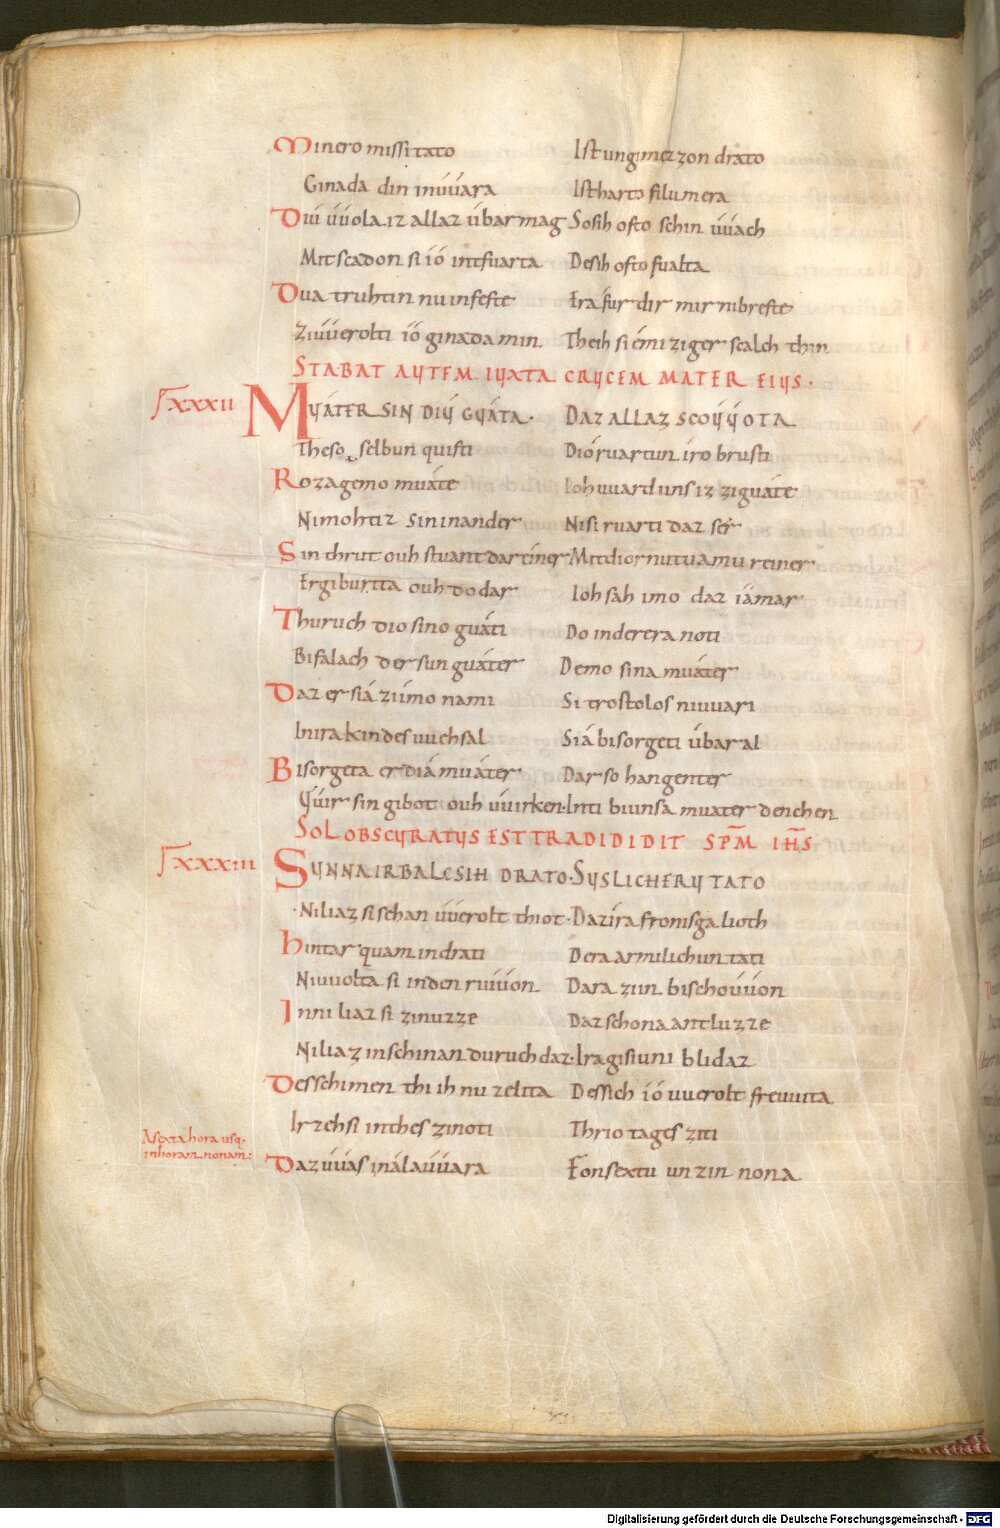 Minero missitato Ist ungimezzon drato
Ginada din inuuara Ist harto filu mera
Dui uuola. iz allaz ubar mag Sosih ofto schin uuach
Mit scadon si io intfuarta Desih ofto fualta
Dua truhtin nu infeste Era fur dir mir nibreste
Ziuuerolti io ginada min Theih si emiziger scalch thin
STABAT AUTEM IUXTA CRUCEM MATER EIUS.
XXXII MUATER SIN DIU GUATA. DAZ ALLAZ SCOUUOTA
Theso selbun quisti Dio ruartun iro brusti
Rozagemo muate Ioh uuard uns iz ziguate
Nimohtiz sin inander Nisi ruarti daz ser
Sin thrut ouh stuant dar einer Mit dior nutuamu reiner
Er giburita ouh do dar Ioh sah imo daz iamar
Thuruch dio sino guati Do in derera noti
Bifalach der sun guater Demo sina muater
Daz er sia zi imo nami Si trostolos niuuari
In ira kindes uuehsal Sia bisorgeti ubar al
Bisorgeta er dia muater Dar so hangenter
Uuir sin gibot ouh uuirken. Inti bi unsa muater denchen
SOL OBSCURATUS EST TRADIDIDIT SPM IHS
XXXIII SUNNA IRBALC SIH DRATO. SUSLICHERU TATO
Niliaz si sehan uuerolt thiot. Daz ira fronisga lioth
Hintar quam in drati Dera armilichun tati
Niuuolta si in den ruuuon Dara zun bischouuon
Inni liaz si zi nuzze Daz schona antluzze
Niliaz in schinan duruch daz. Ira gisiuni blidaz
Des schimen thi ih nu zelita Dessich io uuerolt freuuita
Ir zeh si in thes zi noti Thrio tages ziti
A sexta hora usq.
in horam nonam.
Daz uuas in alauuara Fon sextu unzin nona
Digitalisierung gefördert durch die Deutsche Forschungsgemeinschaft - DFG